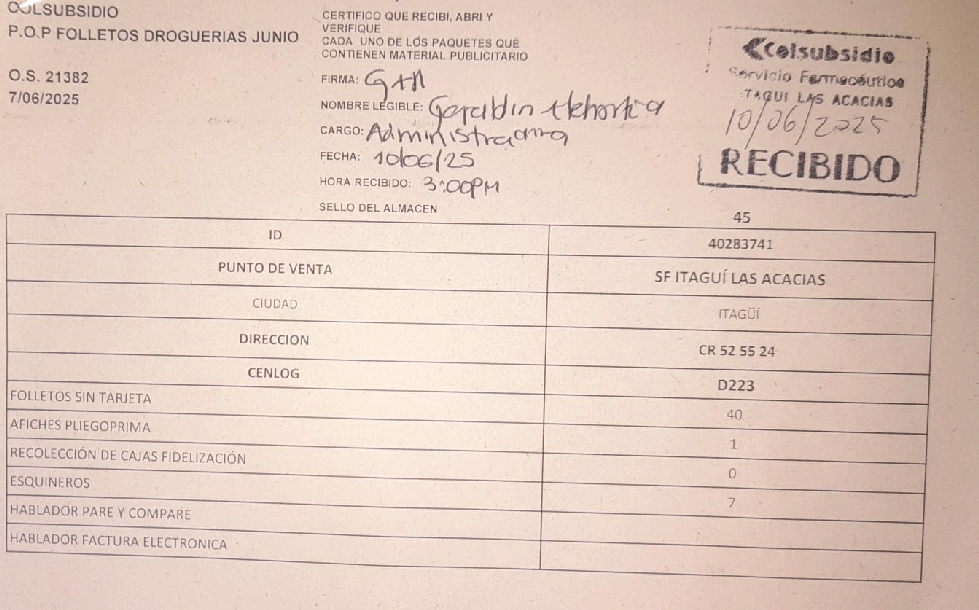 COLSUBSIDIO
P.O.P FOLLETOS DROGUERIAS JUNIO
O.S. 21382
7/06/2025
CERTIFICO QUE RECIBI, ABRI Y
VERIFIQUE
CADA UNO DE LOS PAQUETES QUE
CONTIENEN MATERIAL PUBLICITARIO
FIRMA: GAH
NOMBRE LEGIBLE: Geraldin Atehortua
CARGO: Administradora
FECHA: 10/06/25
HORA RECIBIDO: 3:00PM
SELLO DEL ALMACEN
Colsubsidio
Servicio Farmacéutico
ITAGUI LAS ACACIAS
10/06/2025
RECIBIDO
45
ID 40283741
PUNTO DE VENTA SF ITAGUÍ LAS ACACIAS
CIUDAD ITAGÜÍ
DIRECCION CR 52 55 24
CENLOG D223
FOLLETOS SIN TARJETA 40
AFICHES PLIEGOPRIMA 1
RECOLECCIÓN DE CAJAS FIDELIZACIÓN 0
ESQUINEROS 7
HABLADOR PARE Y COMPARE
HABLADOR FACTURA ELECTRONICA